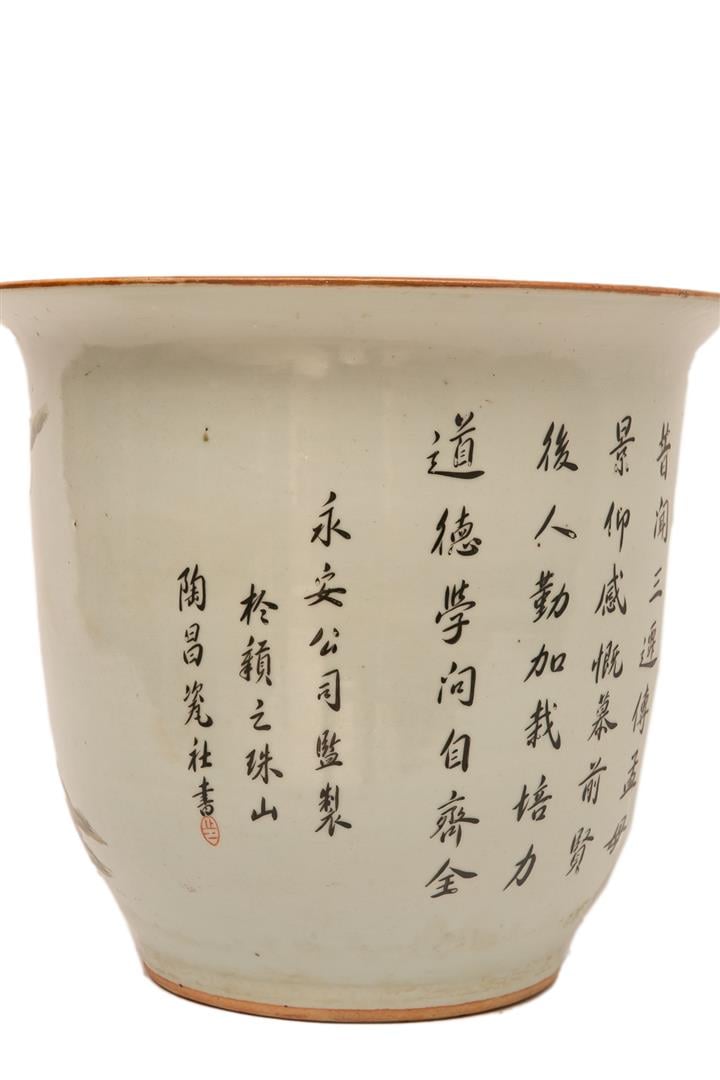 昔聞三遷傳孟母
景仰感慨慕前賢
後人勤加栽培力
道德学问自齊全
永安公司監製
於穎之珠山
陶昌瓷社書